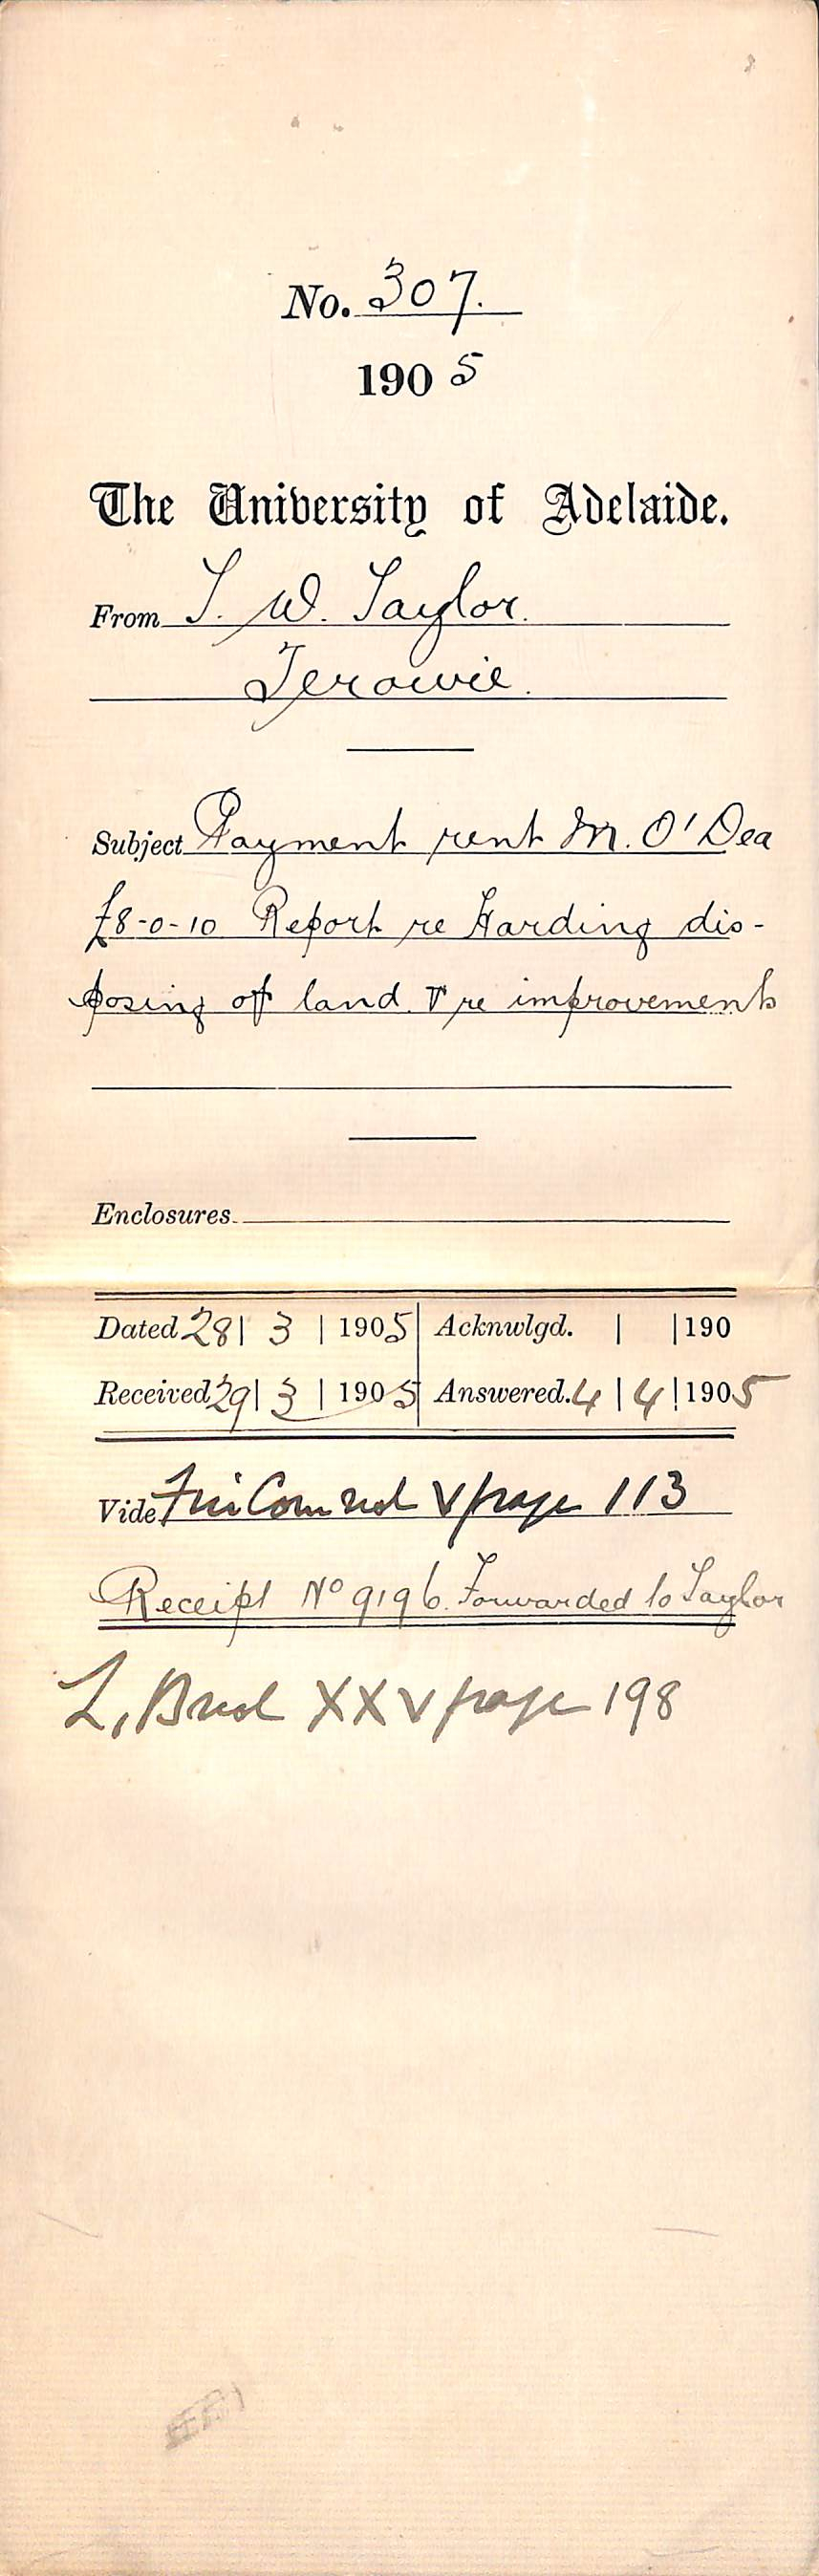 No. 307.
1905
The University of Adelaide.
From T. W. Taylor.
Terowie.
Subject Payment rent M. O'Dea
£8-0-10 Report re Harding dis-
posing of land & re improvements
Enclosures
Dated 28| 3 | 1905| Acknwlgd. | |190
Received 29| 3 | 1905| Answered. 4 | 4 | 1905
Vide Fin Com vol V page 113
Receipt No 9196. Forwarded to Taylor
L, B vol XXV page 198